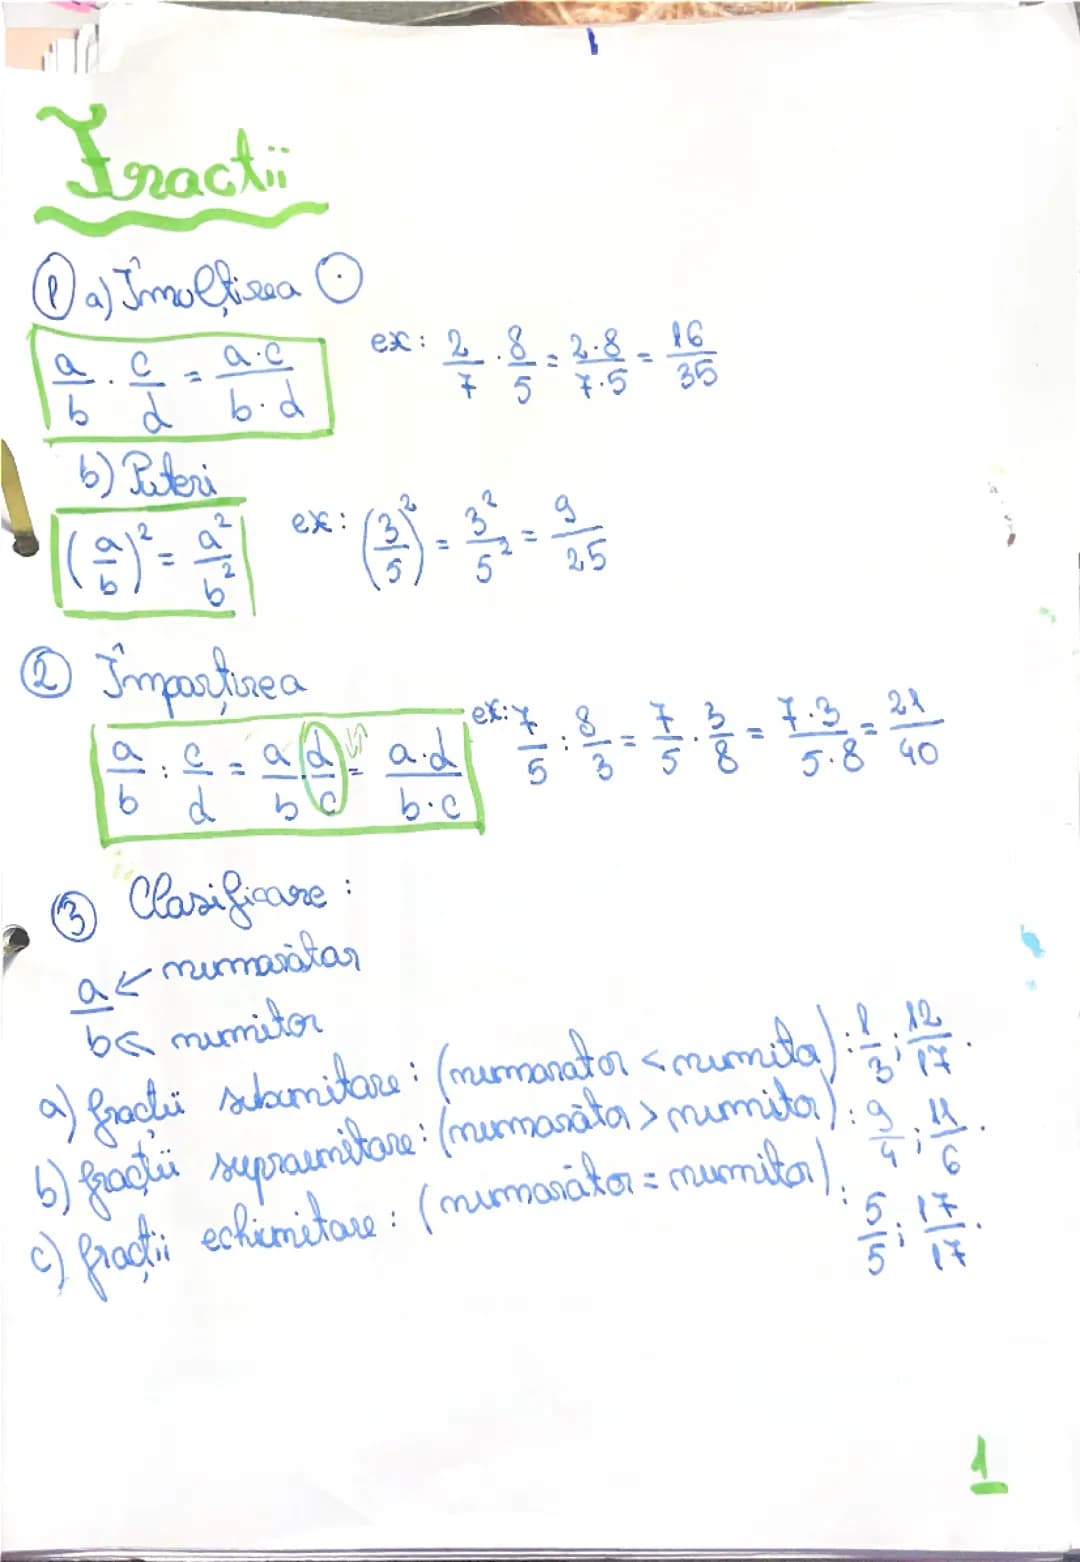 Fractii
① a) Îmulțirea ⊙
a/b · c/d = a·c/b·d ex: 2/7 · 8/5 = 2·8/7·5 = 16/35
b) Puteri
(a/b)² = a²/b² ex: (3/5)² = 3²/5² = 9/25
② Împarțirea
a/b : c/d = a/b · d/c = a·d/b·c ex: 7/5 : 8/3 = 7/5 · 3/8 = 7·3/5·8 = 21/40
③ Clasificare :
a ← numărătar
b ← numitor
a) fracții subunitare : (numarator < numitor) : 1/3 ; 12/17 .
b) fracții supraunitare : (numarător > numitor) : 9/4 ; 11/6 .
c) fracții echiunitare : (numarător = numitor) : 5/5 ; 17/17 .
1